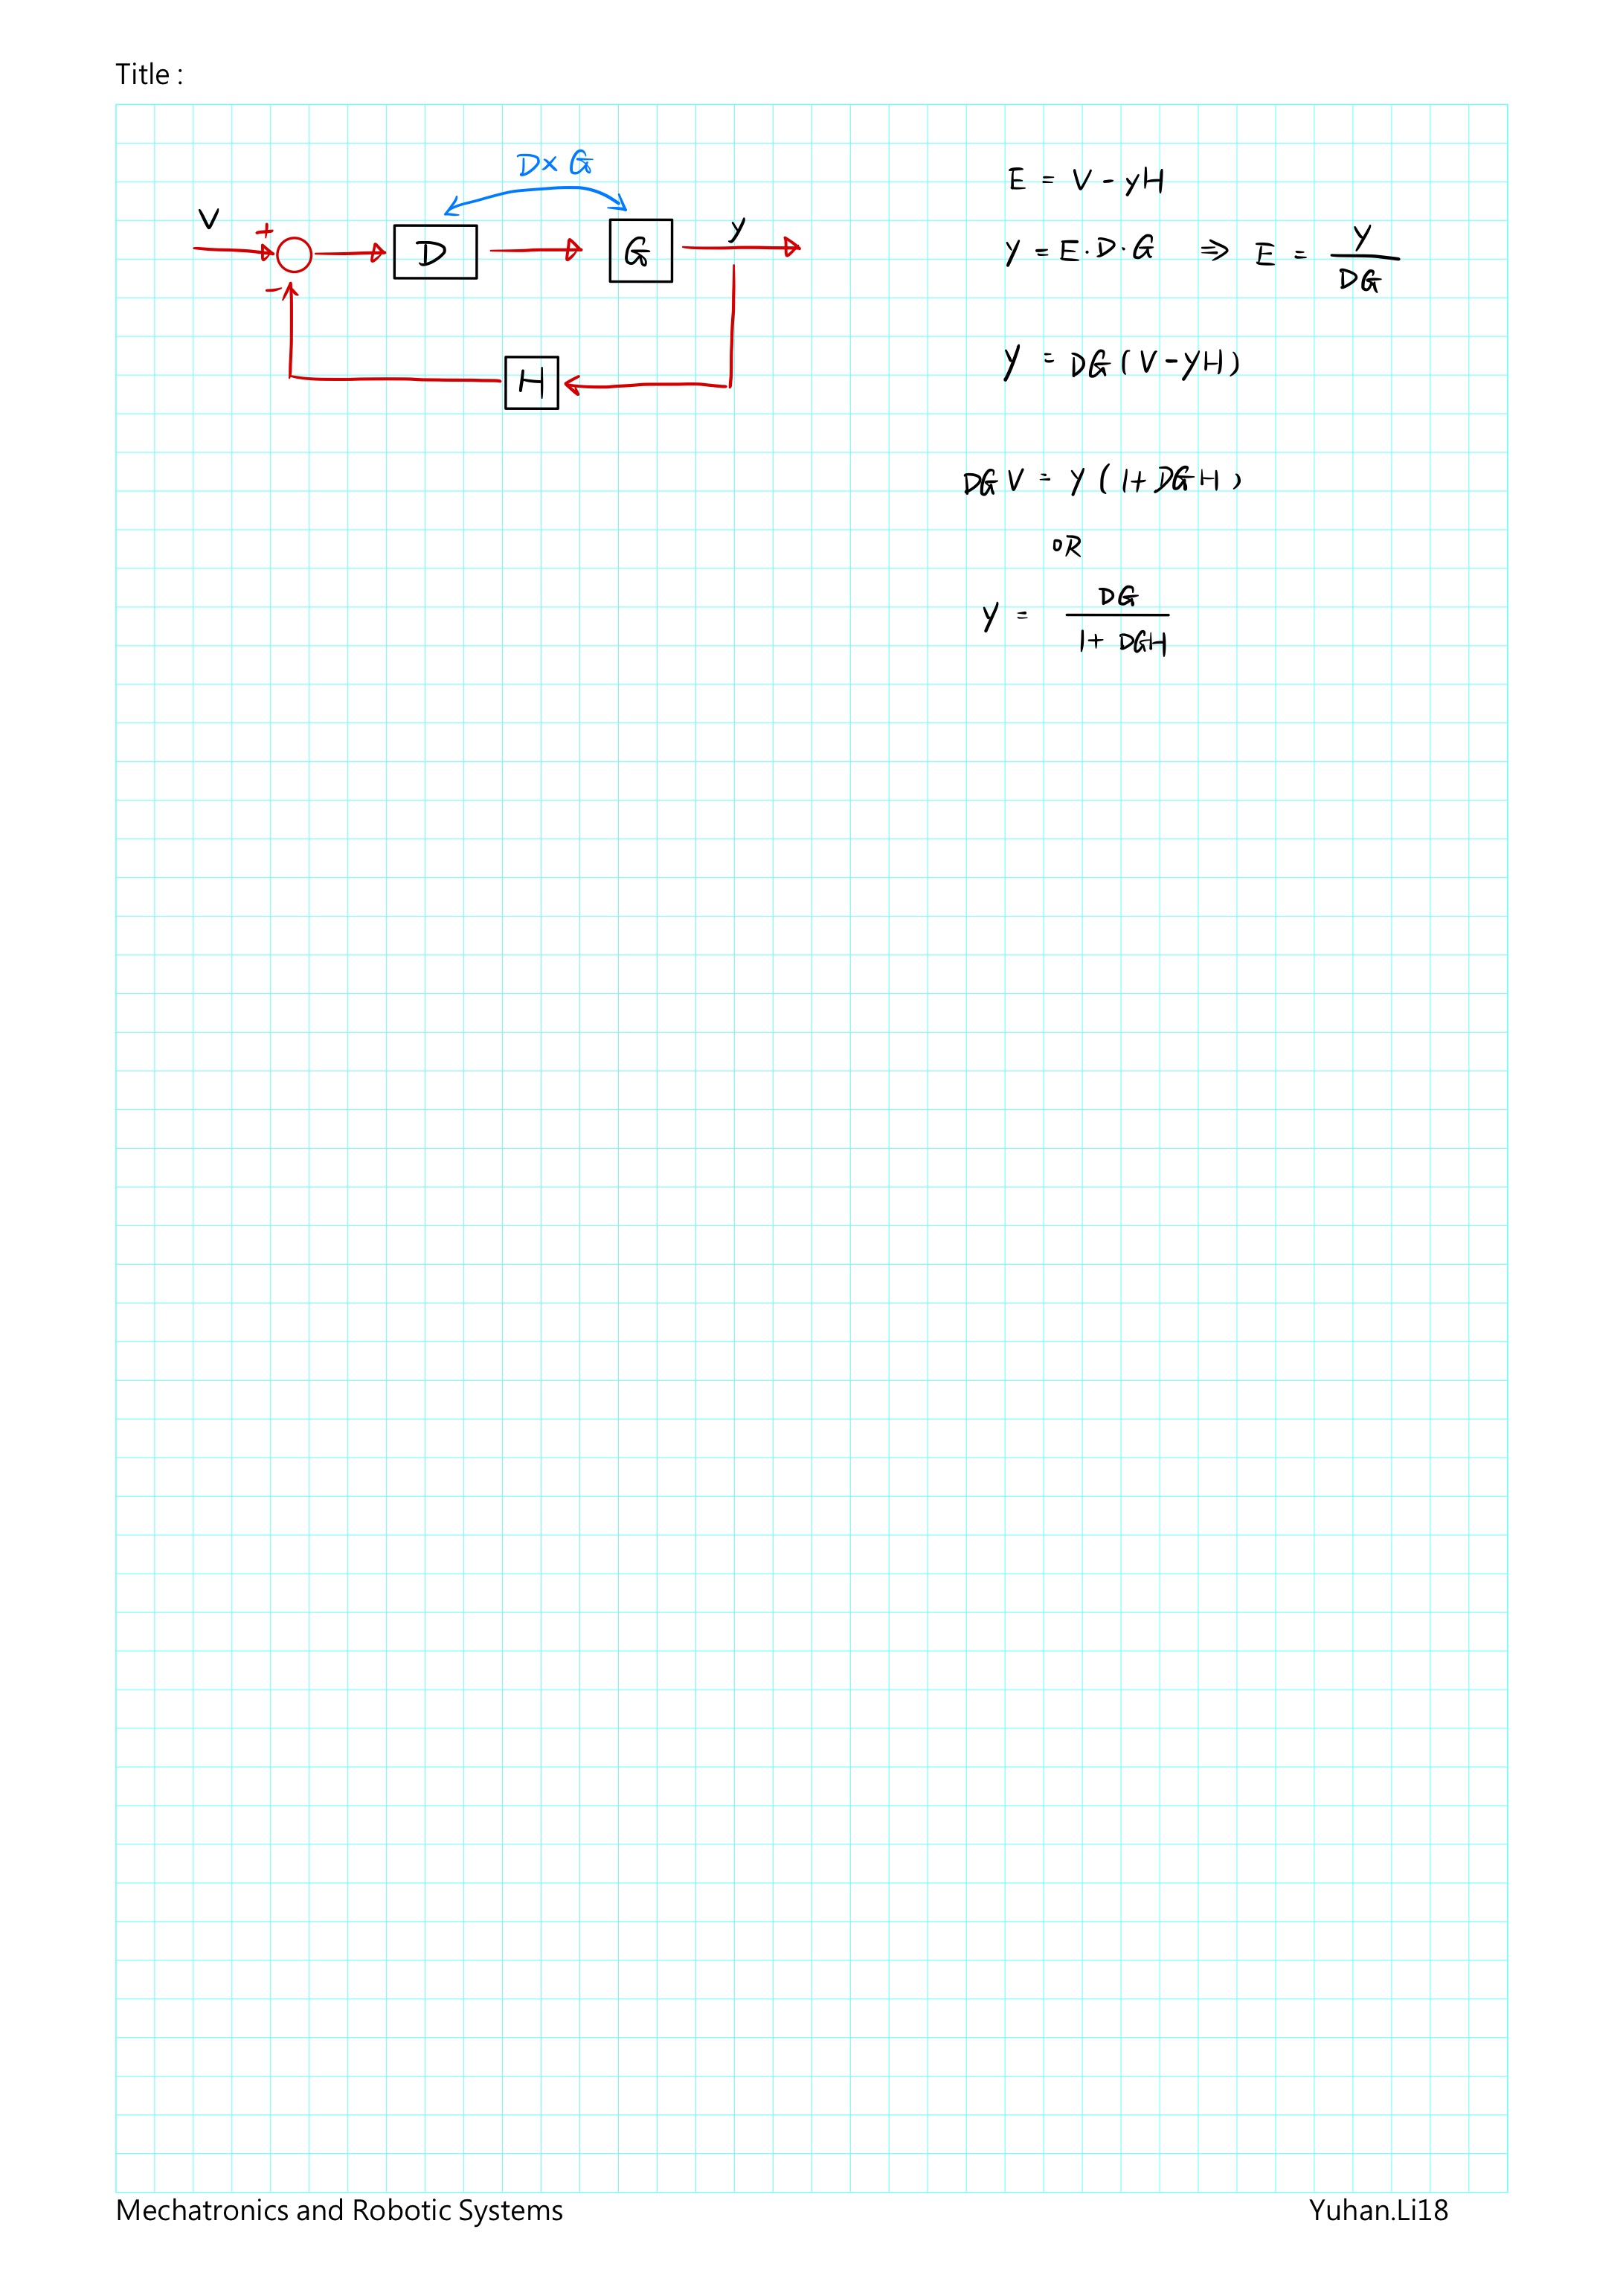 Title :
D× G
V
+
D
G
y
−
H
E = V - yH
y = E·D·G ⇒ E = y / DG
y = DG (V - yH)
DG V = y ( 1 + DGH )
OR
y = DG / 1 + DGH
Mechatronics and Robotic Systems
Yuhan.Li18